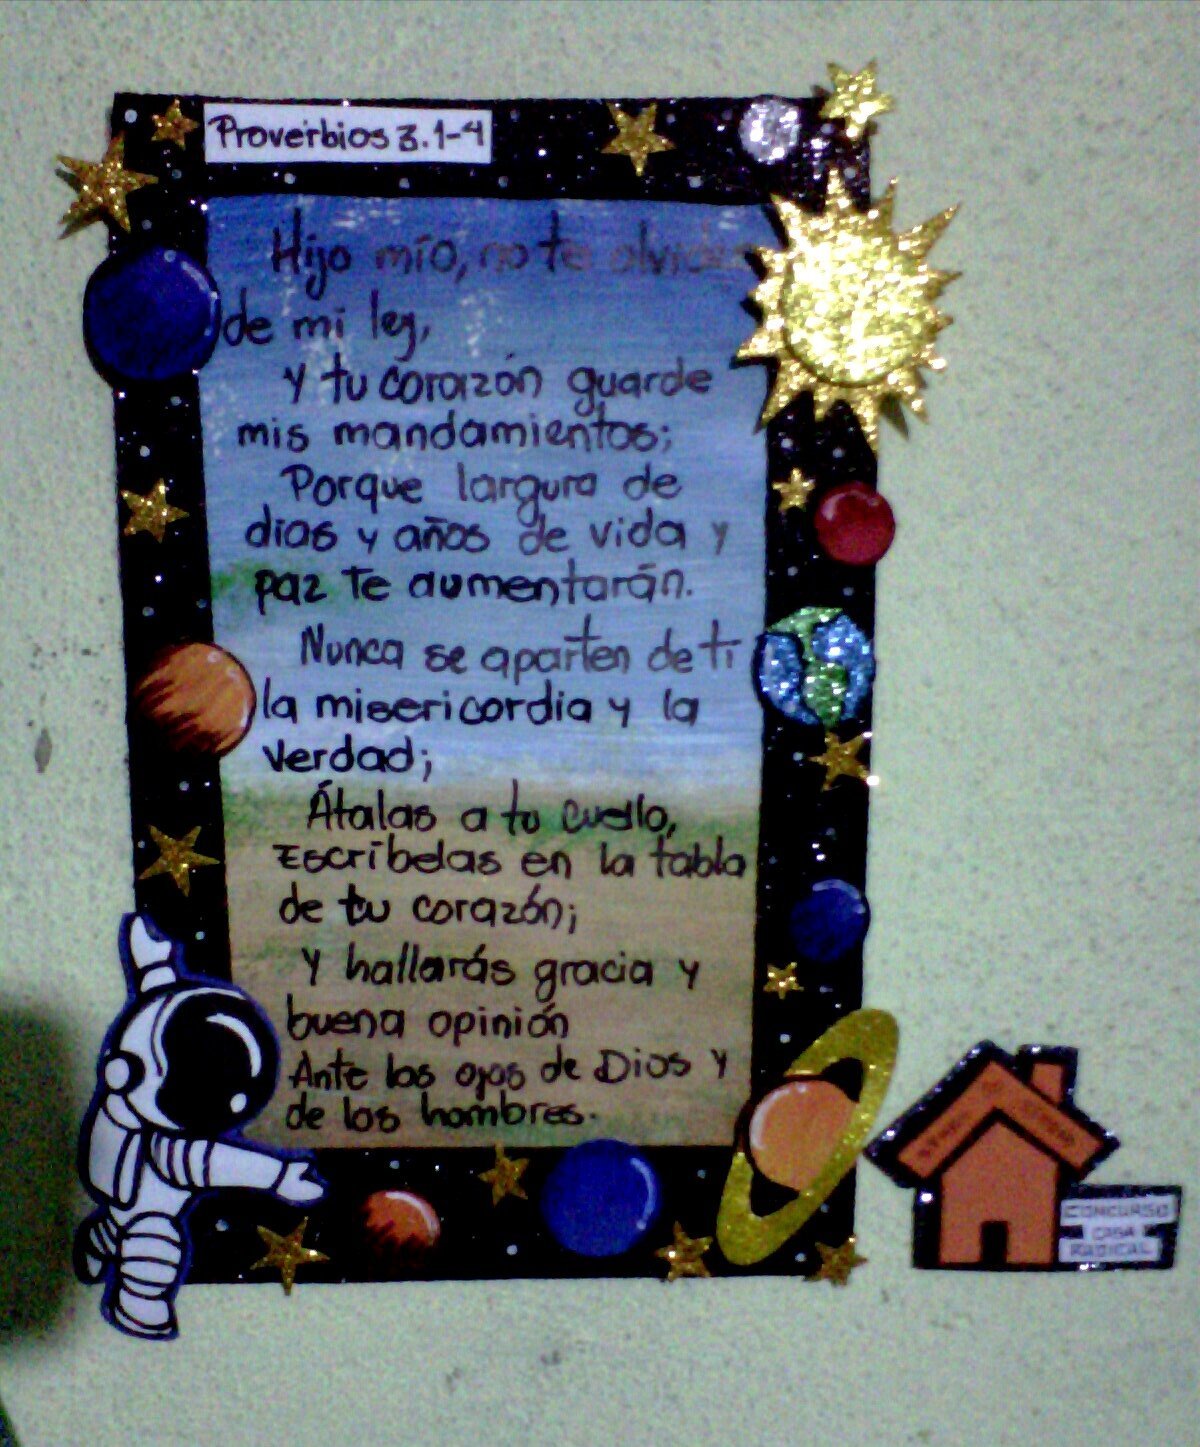 Proverbios 3.1-4
Hijo mío, no te olvides
de mi ley,
Y tu corazón guarde
mis mandamientos;
Porque largura de
días y años de vida y
paz te aumentarán.
Nunca se aparten de ti
la misericordia y la
verdad;
Átalas a tu cuello,
Escríbelas en la tabla
de tu corazón;
Y hallarás gracia y
buena opinión
Ante los ojos de Dios y
de los hombres.
CONCURSO
CASA
RADICAL